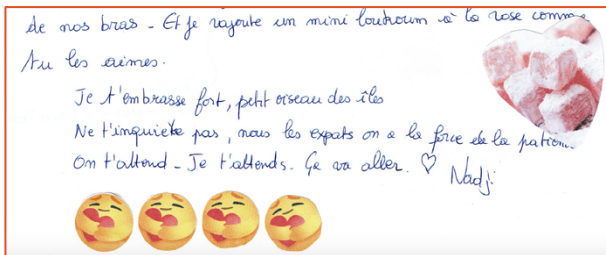 de nos bras - Et je rajoute un mini loukoum à la rose comme
tu les aimes.
Je t'embrasse fort, petit oiseau des îles
Ne t'inquiète pas, nous les expats on a la force de la
On t'attend - Je t'attends. Ça va aller. ♡ Nadji